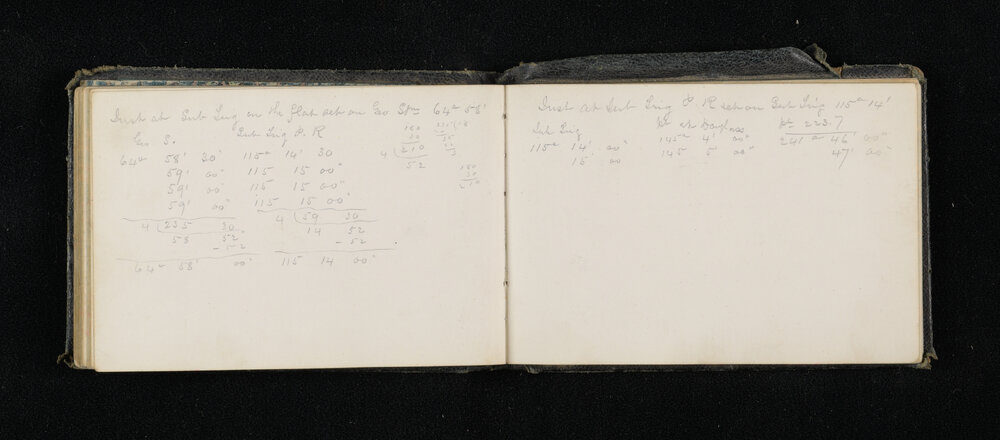 Inst at Sub Trig on the flat set on Geo Stn 64° 58'
Geo S. Sub Trig P. R
64° 58' 30" 115° 14' 30
59' 00" 115 15 00
59' 00" 115 15 00"
59' 00" 115 15 00"
4 (235 30 4 (59 30
58 52 14 52
- 52 - 52
64° 58' 00" 115 14 00"
180
30
4 (210
52
180
30
210
Inst at Sub Trig P R set on Sub Trig 115° 14'
Sub Trig
115° 14' 00"
15 00
145° 4' 00"
145 5 00"
2237
241° 46' 00"
47' 00"